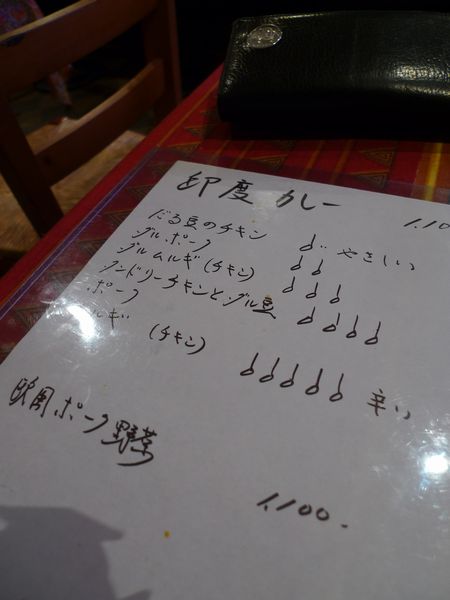 印度 カレー 1,10
だる豆のチキン ♩ … やさしい
ダルポーク ♩♩
ダルムルギ (チキン) ♩♩♩
ンドリーチキンとダル豆 ♩♩♩♩
ポーク
ルギ (チキン) ♩♩♩♩♩ 辛い
欧風ポーク野菜
1,100.